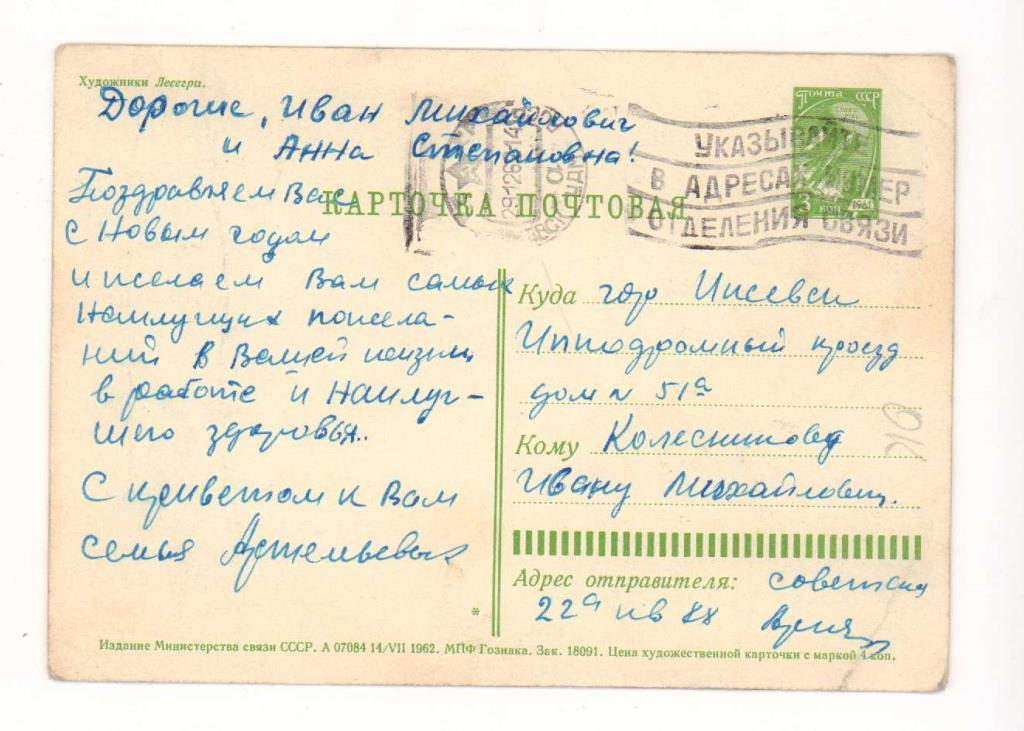 Художники Лесегри.
Дорогие, Иван Михайлович
и Анна Степановна!
Поздравляем Вас
с Новым годом
и желаем Вам самых
наилучших пожела-
ний в Вашей жизни
в работе и наилуч-
шего здоровья..
С приветом к Вам
семья
КАРТОЧКА ПОЧТОВАЯ
Почта СССР
3
КОП
1961
УКАЗЫВАЙТЕ
В АДРЕСАХ НОМЕР
ОТДЕЛЕНИЯ СВЯЗИ
Куда гор Ижевск
Ипподромный проезд
дом N 51а
Кому Колесникову
Ивану Михайлович.
Адрес отправителя: советская
22а кв 88
Издание Министерства связи СССР. А 07084 14/VII 1962. МПФ Гознака. Зак. 18091. Цена художественной карточки с маркой 4 коп.